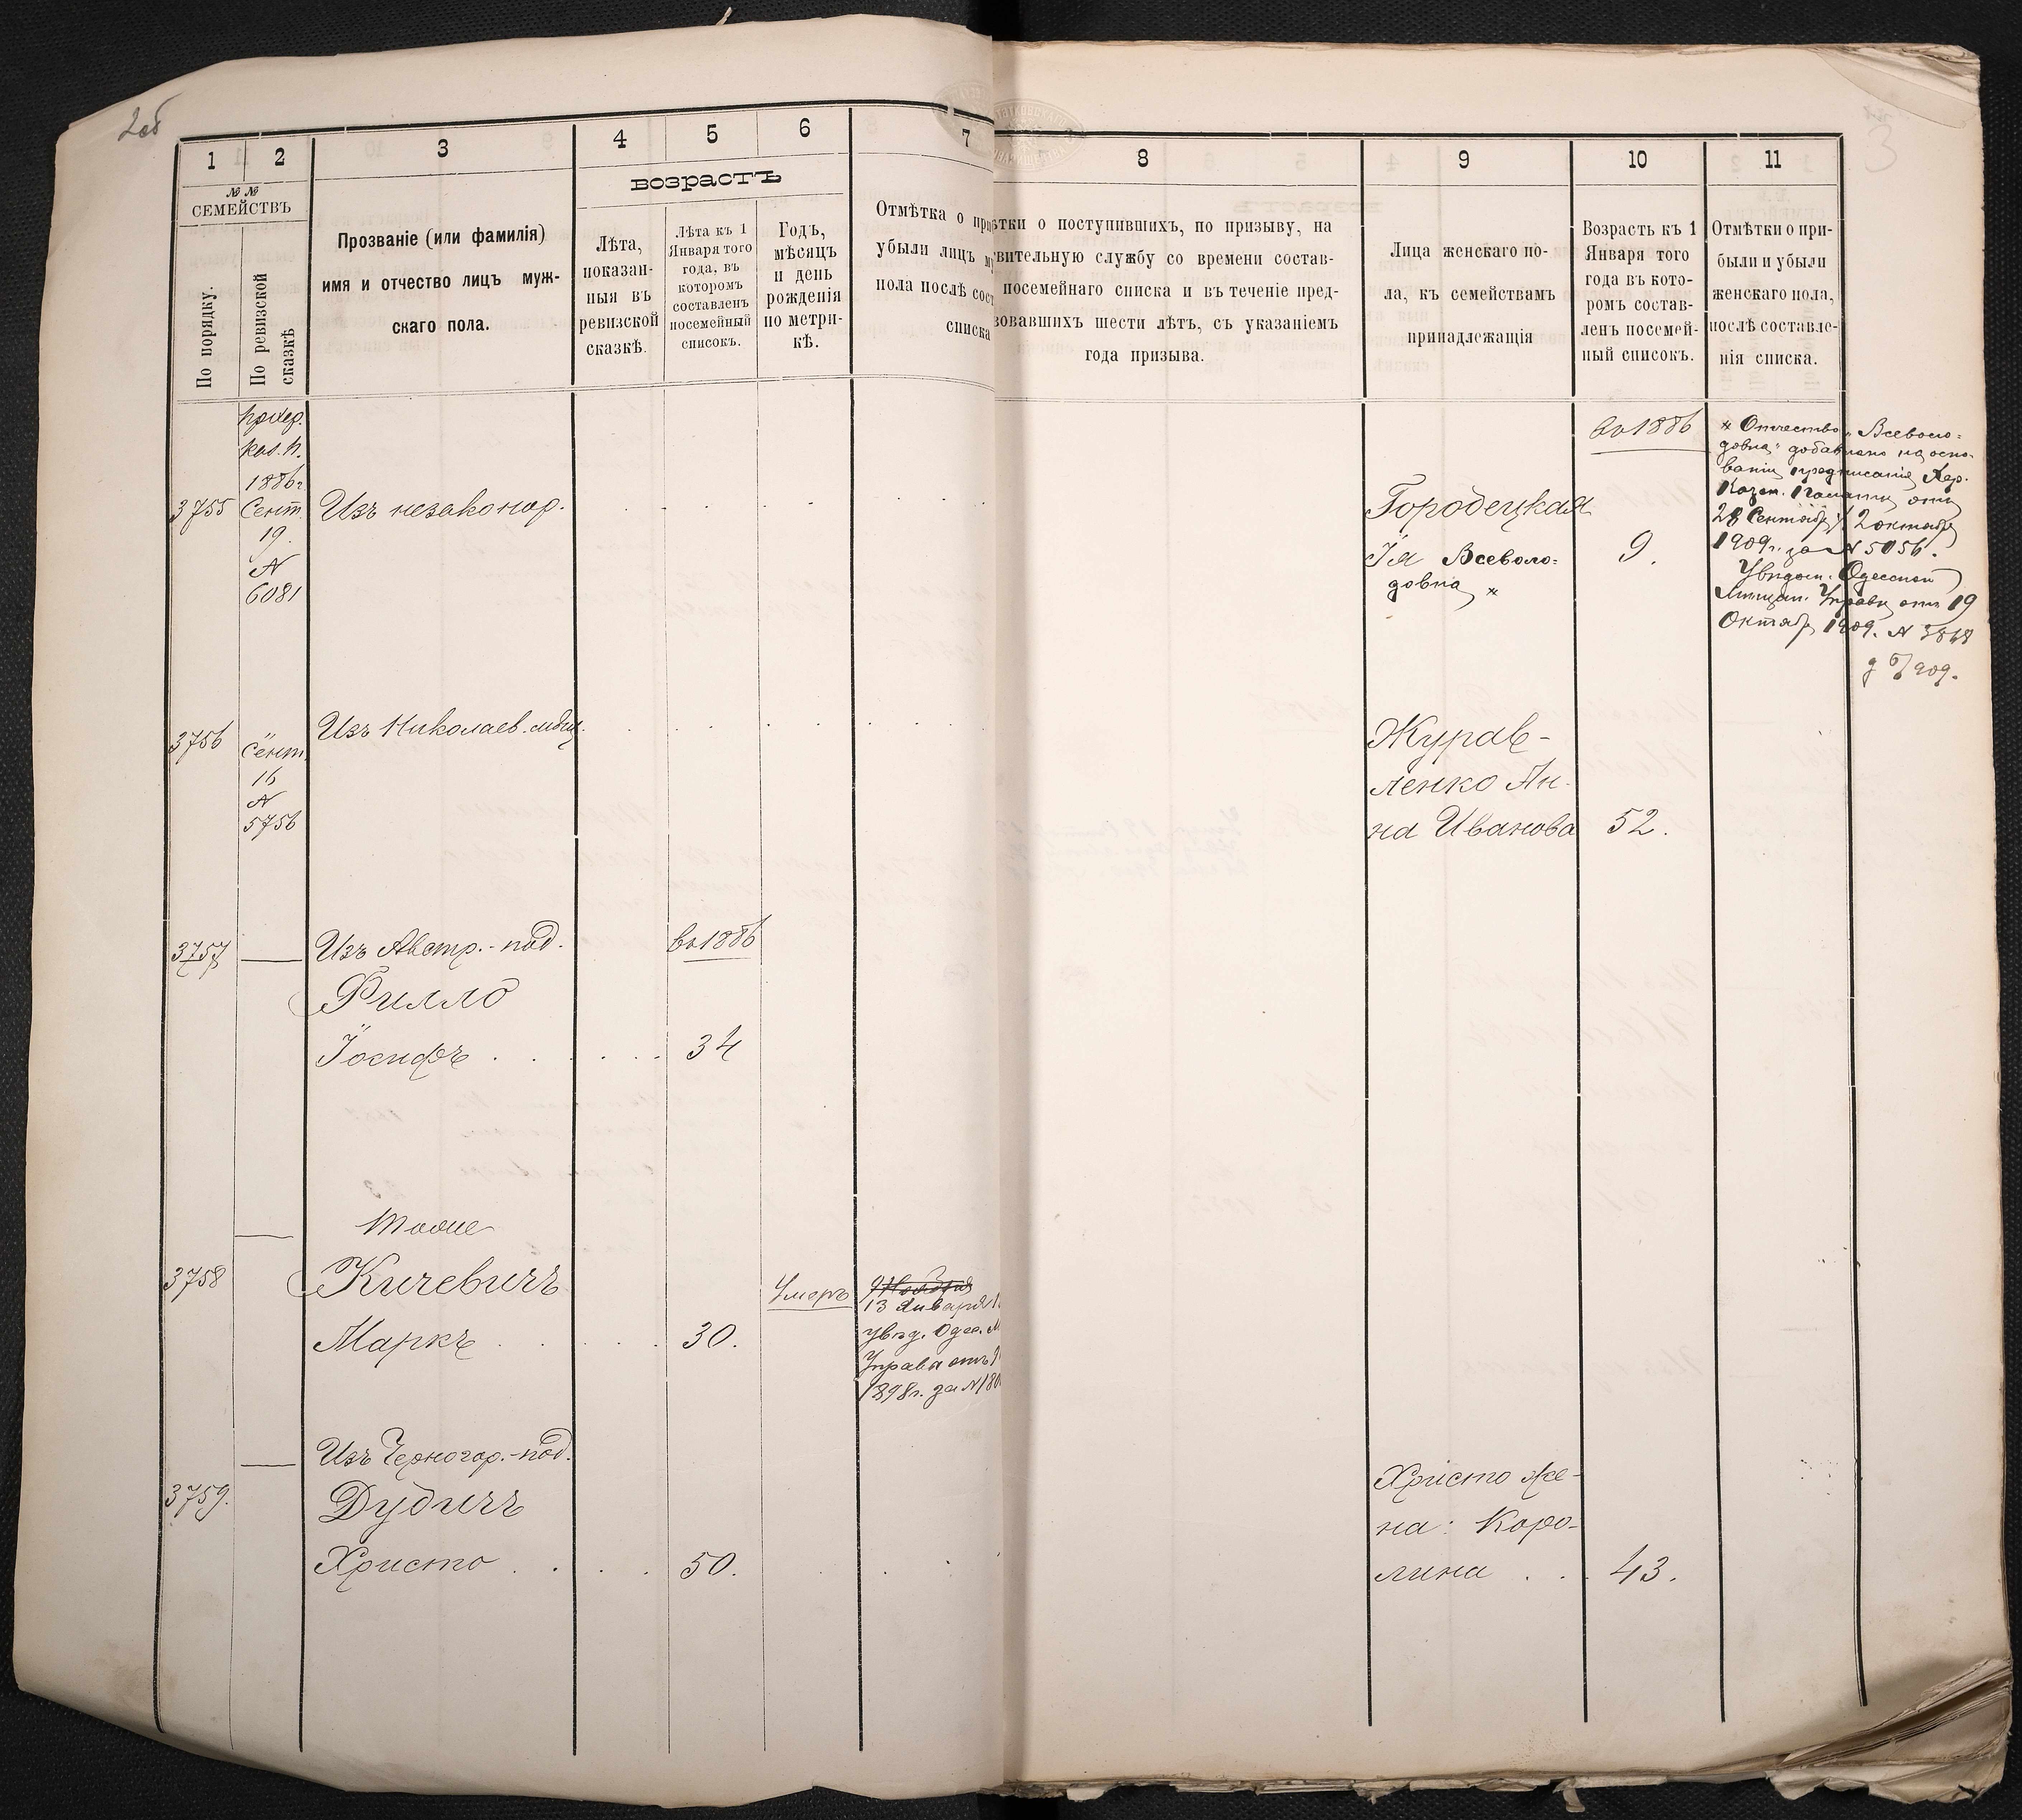 2об
3
1
2
3
4
5
6
7
8
9
10
11
№ №
СЕМЕЙСТВЪ
По порядку.
По ревизской
сказкѣ
Прозваніе (или фамилія)
имя и отчество лицъ муж-
скаго пола.
возрастъ
Лѣта,
показан-
ныя въ
ревизской
сказкѣ.
Лѣта къ 1
Января того
года, въ
которомъ
составленъ
посемейный
списокъ.
Годъ,
мѣсяцъ
и день
рожденія
по метри-
кѣ.
Отмѣтка о при
убыли лицъ му
пола послѣ сост
списка
ѣтки о поступившихъ, по призыву, на
вительную службу со времени состав-
посемейнаго списка и въ теченіе пред-
вовавшихъ шести лѣтъ, съ указаніемъ
года призыва.
Лица женскаго по-
ла, къ семействамъ
принадлежащія
Возрасть къ 1
Января того
года въ кото-
ромъ состав-
ленъ посемей-
ный списокъ.
Отмѣтки о при-
были и убыли
женскаго пола,
послѣ составле-
нія списка.
3755
каз. п.
1886г.
Сент.
19.
№
6081
Изъ незаконор.
Городецкая
Ія Всеволо-
довна *
во 1886
9.
* Отчество „Всеволо-
довна" добавлено на осно-
ваніи предписанія Хер.
Казен. Палаты отъ
28 Сентября/2 октября
1909г. за № 5056.
Увѣдом. Одесской
Мѣщан. Управы отъ 19
Октября 1909. №
3756
Сент.
16
№
5756
Изъ Николаев. мѣщ.
Журав-
ленко Ан-
на Иванова
52.
3757
Изъ Австр.-под.
во 1886
Филло
Іосифъ
34
Тоже
3758
Кичевичъ
Маркъ
30.
Умеръ
13 Января
увѣд. Одес. М
Управы отъ
1898г. за №
Изъ Черногор.-под.
3759.
Дудичъ
Христо
50.
Христо же-
на: Каро-
лина
43.